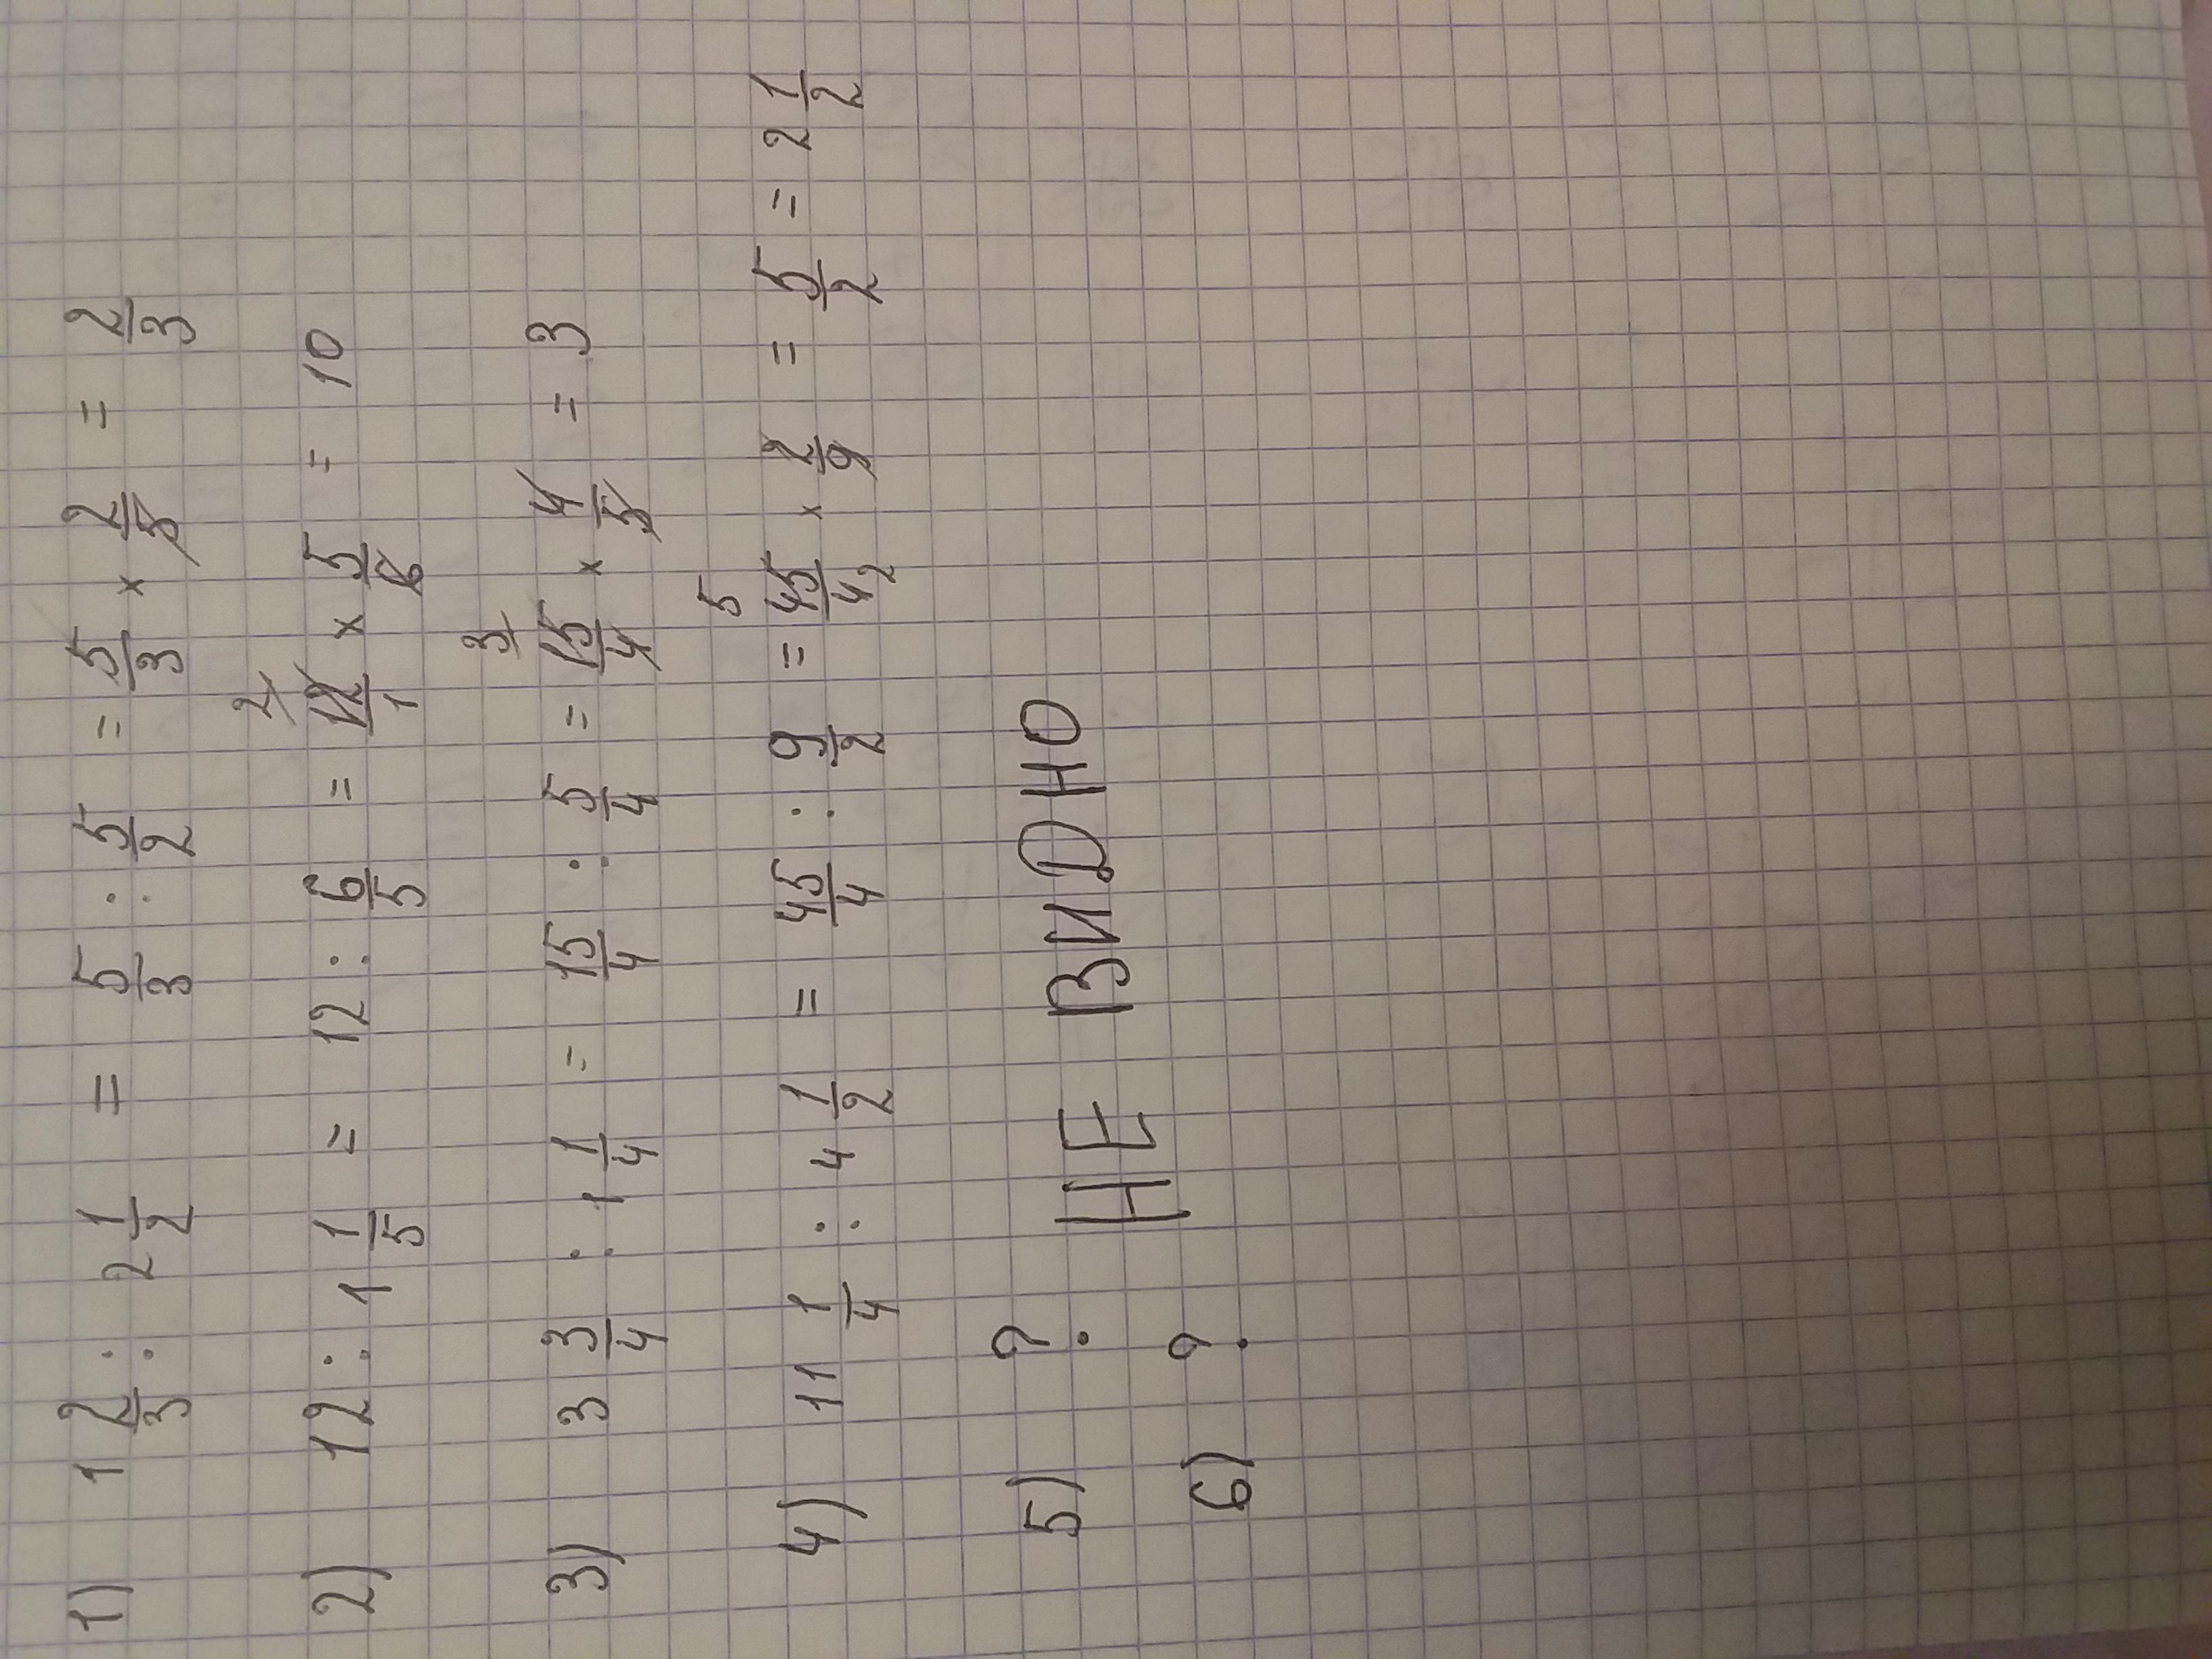 1) 1 2/3 : 2 1/2 = 5/3 : 5/2 = 5/3 × 2/5 = 2/3
2) 12 : 1 1/5 = 12 : 6/5 = 12/1 2 × 5/6 = 10
3) 3 3/4 : 1 1/4 = 15/4 : 5/4 = 15/4 3 × 4/5 = 3
4) 11 1/4 : 4 1/2 = 45/4 : 9/2 = 45/4 5 2 × 2/9 = 5/2 = 2 1/2
5) ? НЕ ВИDНО
6) ?